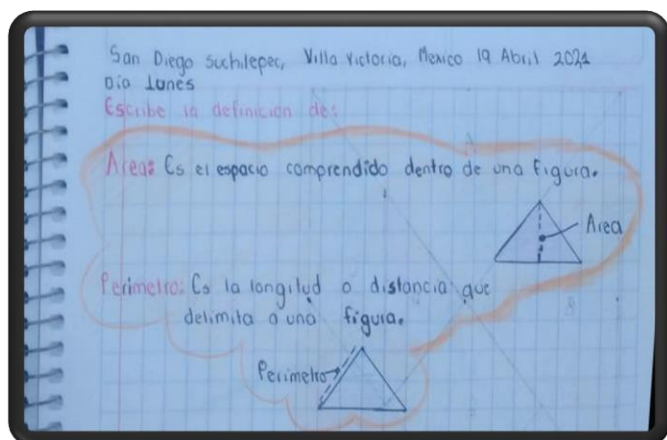 San Diego Suchitepec, Villa Victoria, Mexico 19 Abril 2021
Día Lunes
Escribe la definición de:
Area: Es el espacio comprendido dentro de una Figura.
Area
Perimetro: Es la longitud o distancia que
delimita a una figura.
Perimetro